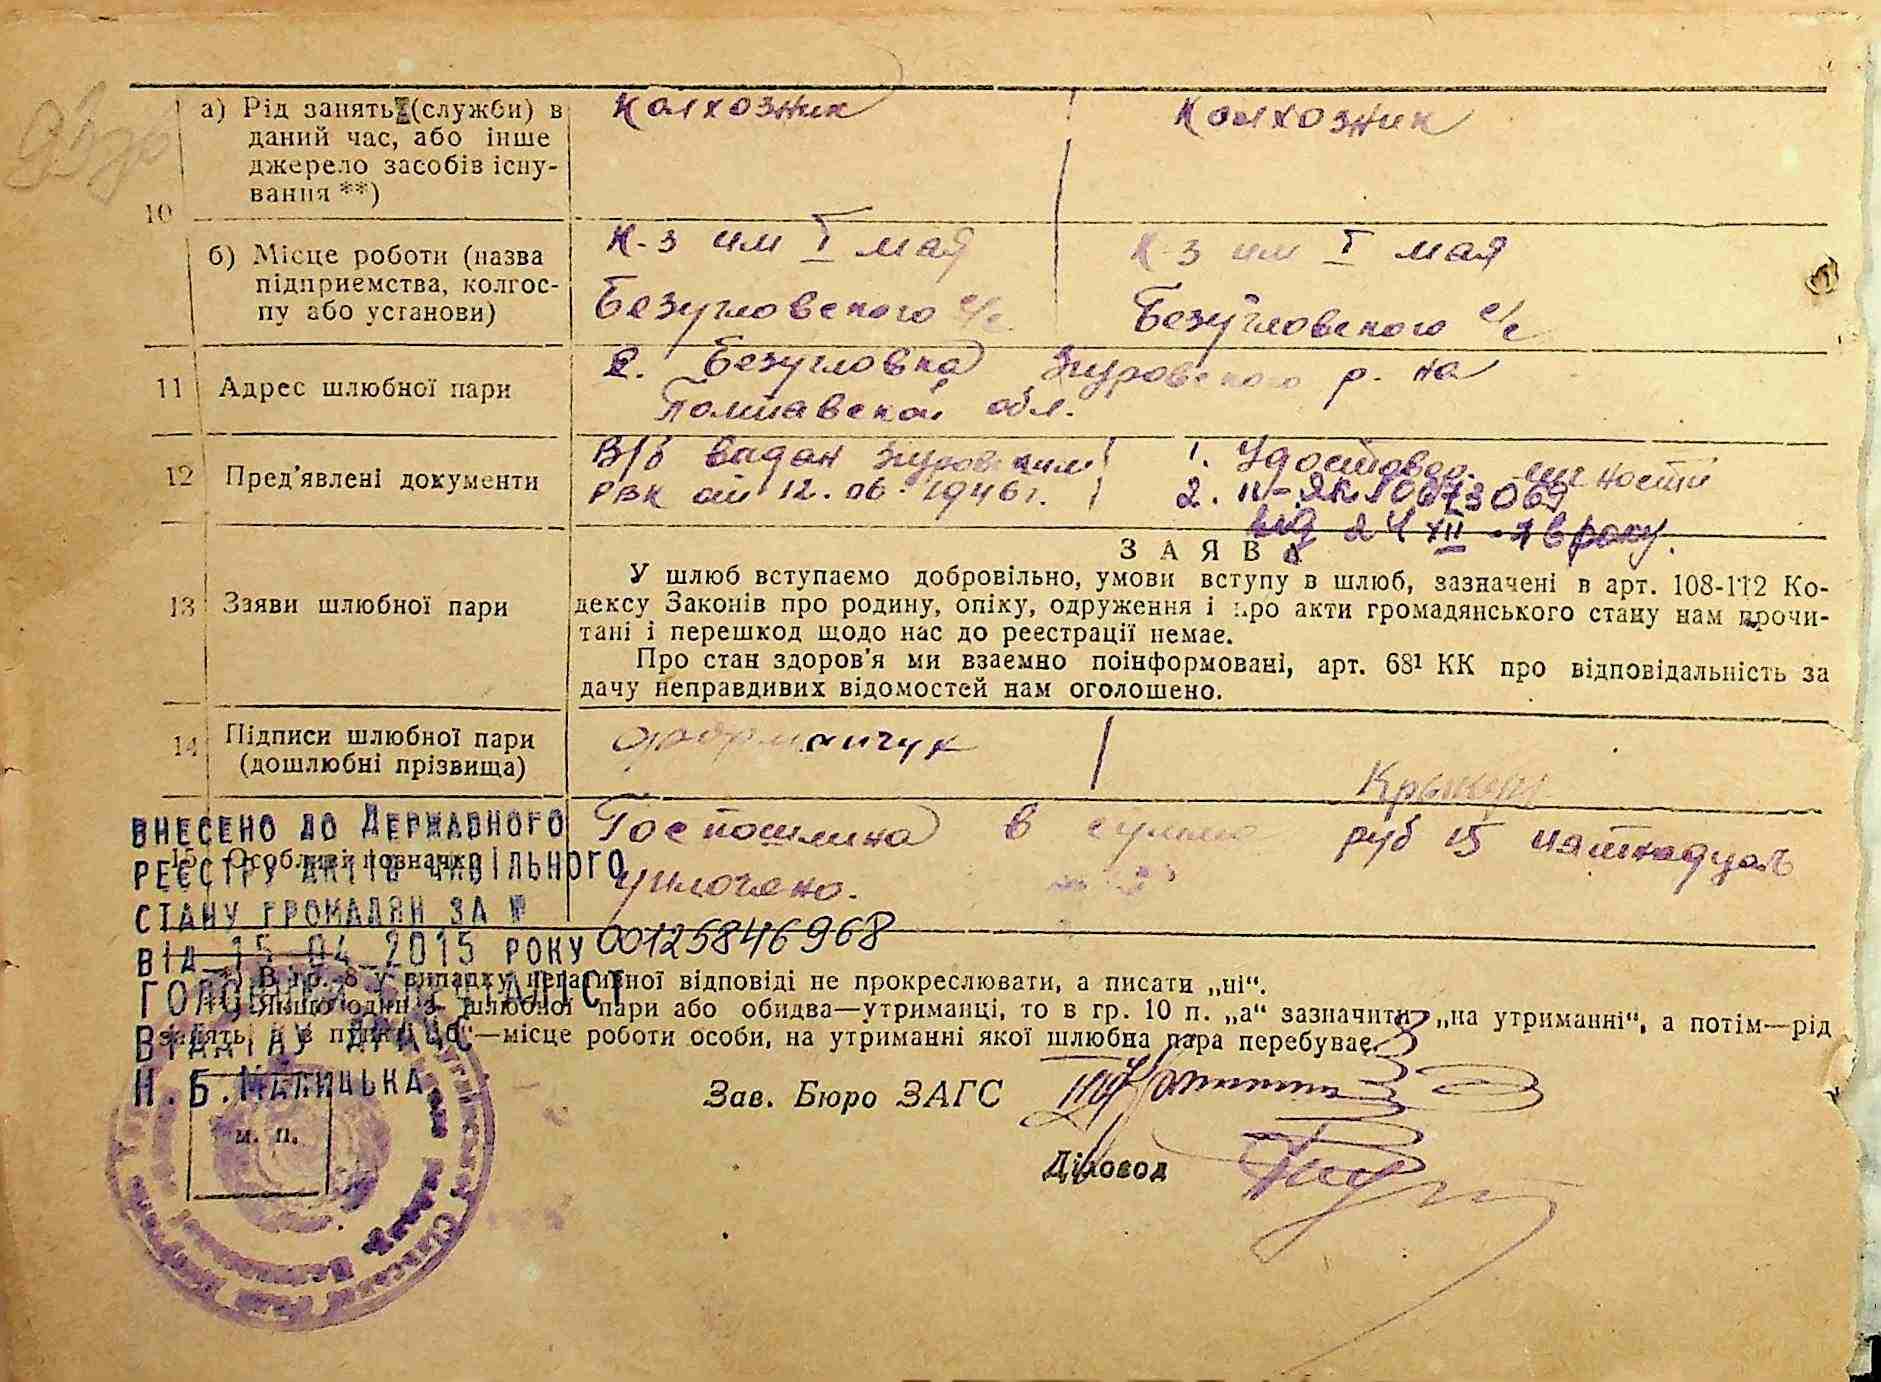 а) Рід занять (служби) в
даний час, або інше
джерело засобів існу-
вання **)
Колхозник
Колхозник
10
б) Місце роботи (назва
підприємства, колгос-
пу або установи)
К-з им I мая
Безугловского с/с
К-з им I мая
Безугловского с/с
11 Адрес шлюбної пари
с. Безугловка Згуровского р-на
Полтавской обл.
12 Пред’явлені документи
В/б видан Згуровским
РВК от 12.06.1946 г.
1. Удостовер. личности
2.
від 24 XII
13 Заяви шлюбної пари
ЗАЯВА
У шлюб вступаємо добровільно, умови вступу в шлюб, зазначені в арт. 108-112 Ко-
дексу Законів про родину, опіку, одруження і про акти громадянського стану нам прочи-
тані і перешкод щодо нас до реєстрації немає.
Про стан здоров’я ми взаємно поінформовані, арт. 68¹ КК про відповідальність за
дачу неправдивих відомостей нам оголошено.
14 Підписи шлюбної пари
(дошлюбні прізвища)
15 Особливі позначки
Госпошлина в сумме руб 15 пятнадцать
уплочено.
ВНЕСЕНО ДО ДЕРЖАВНОГО
РЕЄСТРУ АКТІВ ЦИВІЛЬНОГО
СТАНУ ГРОМАДЯН ЗА №
ВІД 15 04 2015 РОКУ 00125846968
ГОЛОВНИЙ СПЕЦІАЛІСТ
ВІДДІЛУ ДРАЦС
Н.Б.МАЛИЦЬКА
*) В гр. 8 у випадку негативної відповіді не прокреслювати, а писати „ні“.
Якщо один з шлюбної пари або обидва—утриманці, то в гр. 10 п. „а“ зазначити „на утриманні“, а потім—рід
занять, а в пункті „б“—місце роботи особи, на утриманні якої шлюбна пара перебуває.
Зав. Бюро ЗАГС
м. п.
Діловод